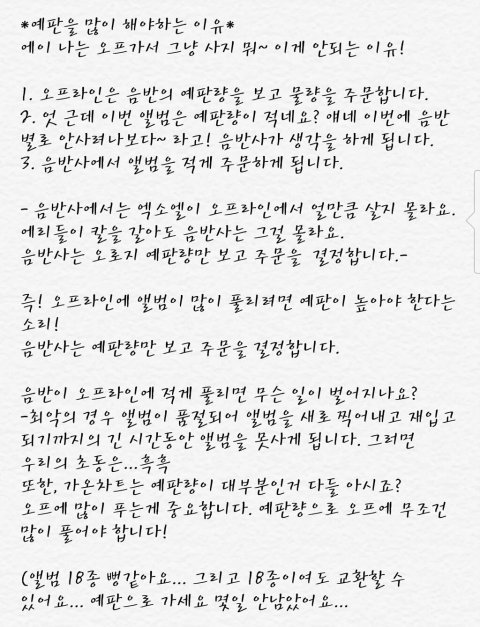 *예판을 많이 해야하는 이유*
에이 나는 오프가서 그냥 사지 뭐~ 이게 안되는 이유!
1. 오프라인은 음반의 예판량을 보고 물량을 주문합니다.
2. 엇 근데 이번 앨범은 예판량이 적네요? 얘네 이번에 음반
별로 안사려나보다~ 라고! 음반사가 생각을 하게 됩니다.
3. 음반사에서 앨범을 적게 주문하게 됩니다.
- 음반사에서는 엑소엘이 오프라인에서 얼만큼 살지 몰라요.
에리들이 칼을 갈아도 음반사는 그걸 몰라요.
음반사는 오로지 예판량만 보고 주문을 결정합니다.-
즉! 오프라인에 앨범이 많이 풀리려면 예판이 높아야 한다는
소리!
음반사는 예판량만 보고 주문을 결정합니다.
음반이 오프라인에 적게 풀리면 무슨 일이 벌어지나요?
-최악의 경우 앨범이 품절되어 앨범을 새로 찍어내고 재입고
되기까지의 긴 시간동안 앨범을 못사게 됩니다. 그러면
우리의 초동은...흑흑
또한, 가온차트는 예판량이 대부분인거 다들 아시죠?
오프에 많이 푸는게 중요합니다. 예판량으로 오프에 무조건
많이 풀어야 합니다!
(앨범 18종 뻥같아요... 그리고 18종이여도 교환할 수
있어요... 예판으로 가세요 몇일 안남았어요...